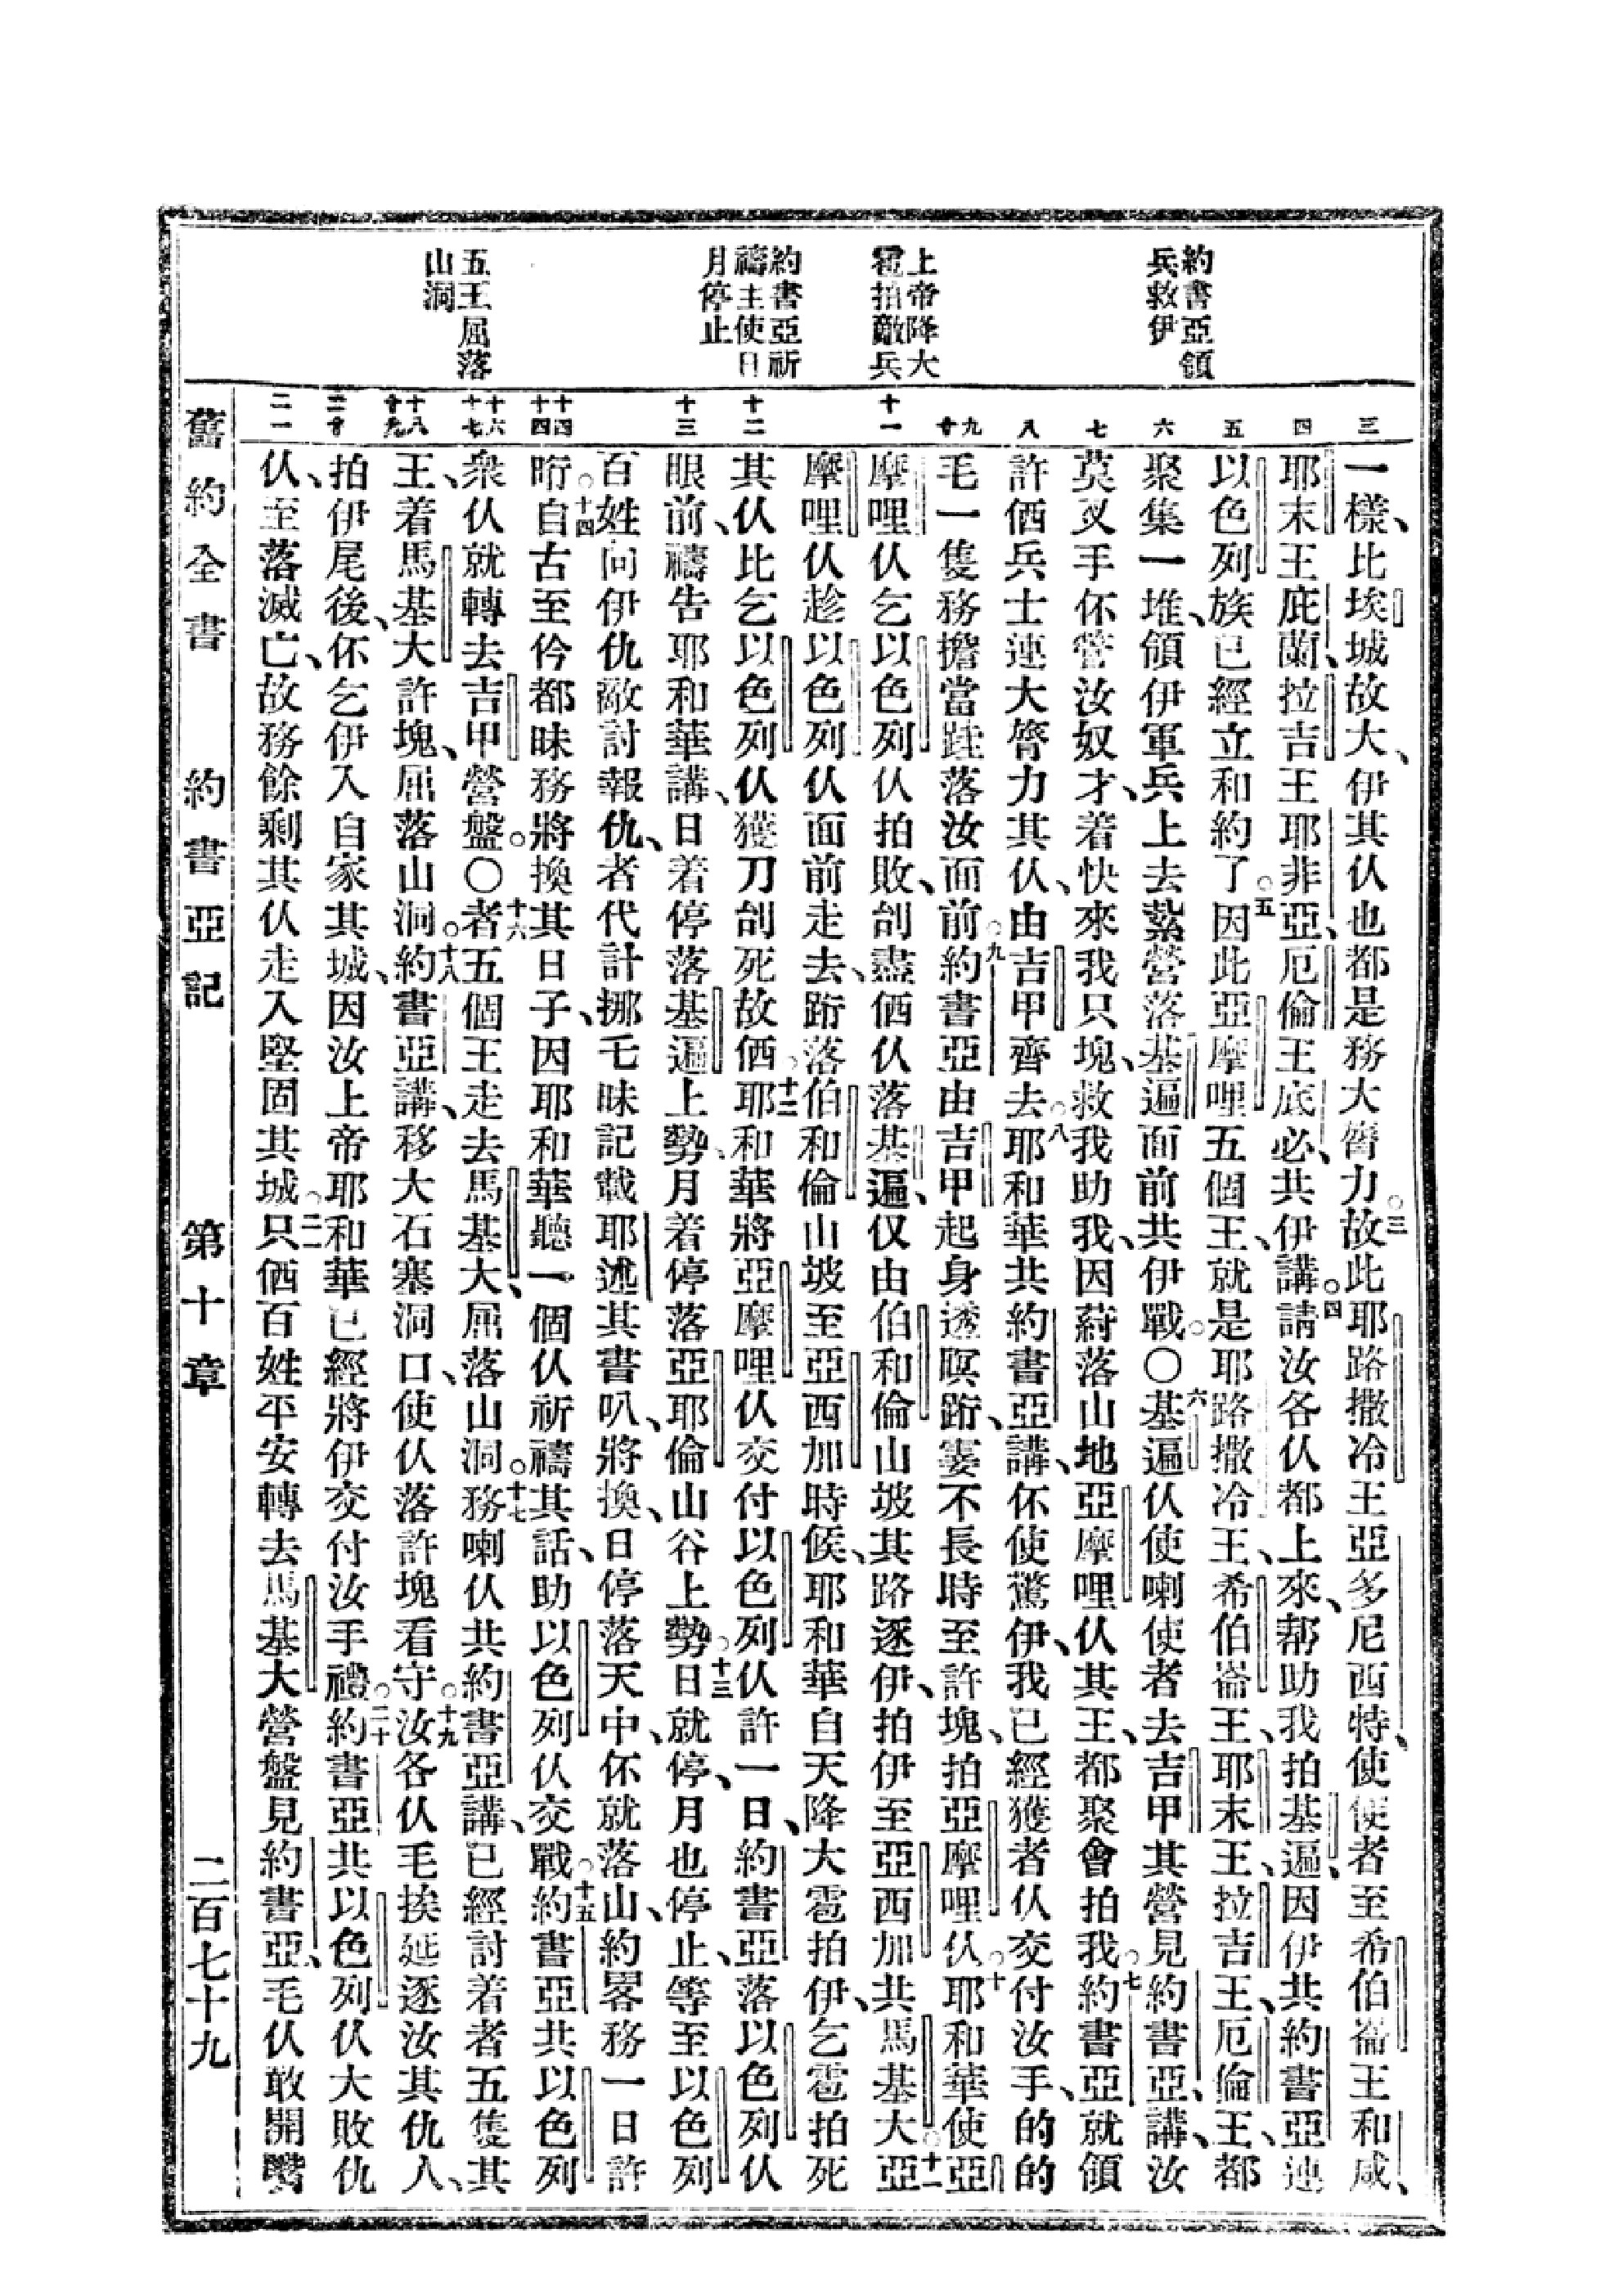 約書亞領
兵救伊
上帝降大
雹拍敵兵
約書亞祈
禱主使日
月停止
五王屈落
山洞
三
四
五
六
七
八
九
十
十一
十二
十三
十四
十四
十六
十七
十八
十九
二十
二一
一樣、比埃城故大、伊其仈也都是務大膂力。○三故此耶路撒冷王亞多尼西特、使使者至希伯崙王和咸、
耶末王庇蘭、拉吉王耶非亞、厄倫王底必、共伊講。○四請汝各仈都上來、幫助我拍基遍、因伊共約書亞連
以色列族、已經立和約了。○五因此亞摩哩五個王、就是耶路撒冷王、希伯崙王、耶末王、拉吉王、厄倫王、都
聚集一堆、領伊軍兵上去、紮營落基遍面前共伊戰。○○六基遍仈使喇使者去吉甲其營、見約書亞、講、汝
莫叉手伓管汝奴才、着快來我只塊、救我助我、因蔚落山地亞摩哩仈其王、都聚會拍我。○七約書亞就領
許価兵士連大膂力其仈、由吉甲齊去。○八耶和華共約書亞講、伓使驚伊、我已經獲者仈交付汝手、的的
毛一隻務擔當跬落汝面前。○九約書亞由吉甲起身透暝跡、寠不長時至許塊、拍亞摩哩仈。○十耶和華使亞
摩哩仈乞以色列仈拍敗、刣盡価仈落基遍、仅由伯和倫山坡其路逐伊、拍伊至亞西加共馬基大。○十一亞
摩哩仈趁以色列仈面前走去、跡落伯和倫山坡至亞西加時候、耶和華自天降大雹拍伊、乞雹拍死
其仈比乞以色列仈獲刀刣死故価。○十二耶和華將亞摩哩仈交付以色列仈許一日、約書亞落以色列仈
眼前、禱告耶和華講、日着停落基遍上勢、月着停落亞耶倫山谷上勢。○十三日就停、月也停止、等至以色列
百姓向伊仇敵討報仇、者代計挪乇昧記載耶述其書叺、將換、日停落天中、伓就落山、約畧務一日許
昕。○十四自古至仱都昧務將換其日子、因耶和華聽一個仈祈禱其話、助以色列仈交戰。○十五約書亞共以色列
衆仈就轉去吉甲營盤。○○十六者五個王走去馬基大、屈落山洞。○十七務喇仈共約書亞講、已經討着者五隻其
王、着馬基大許塊、屈落山洞。○十八約書亞講、移大石塞洞口、使仈落許塊看守。○十九汝各仈毛挨延逐汝其仇人、
拍伊尾後、伓乞伊入自家其城、因汝上帝耶和華已經將伊交付汝手禮。○二十約書亞共以色列仈大敗仇
仈、至落滅亡、故務餘剩其仈走入堅固其城。○二一只価百姓平安轉去馬基大營盤見約書亞、毛仈敢開嘴
舊約全書　約書亞記　第十章　二百七十九